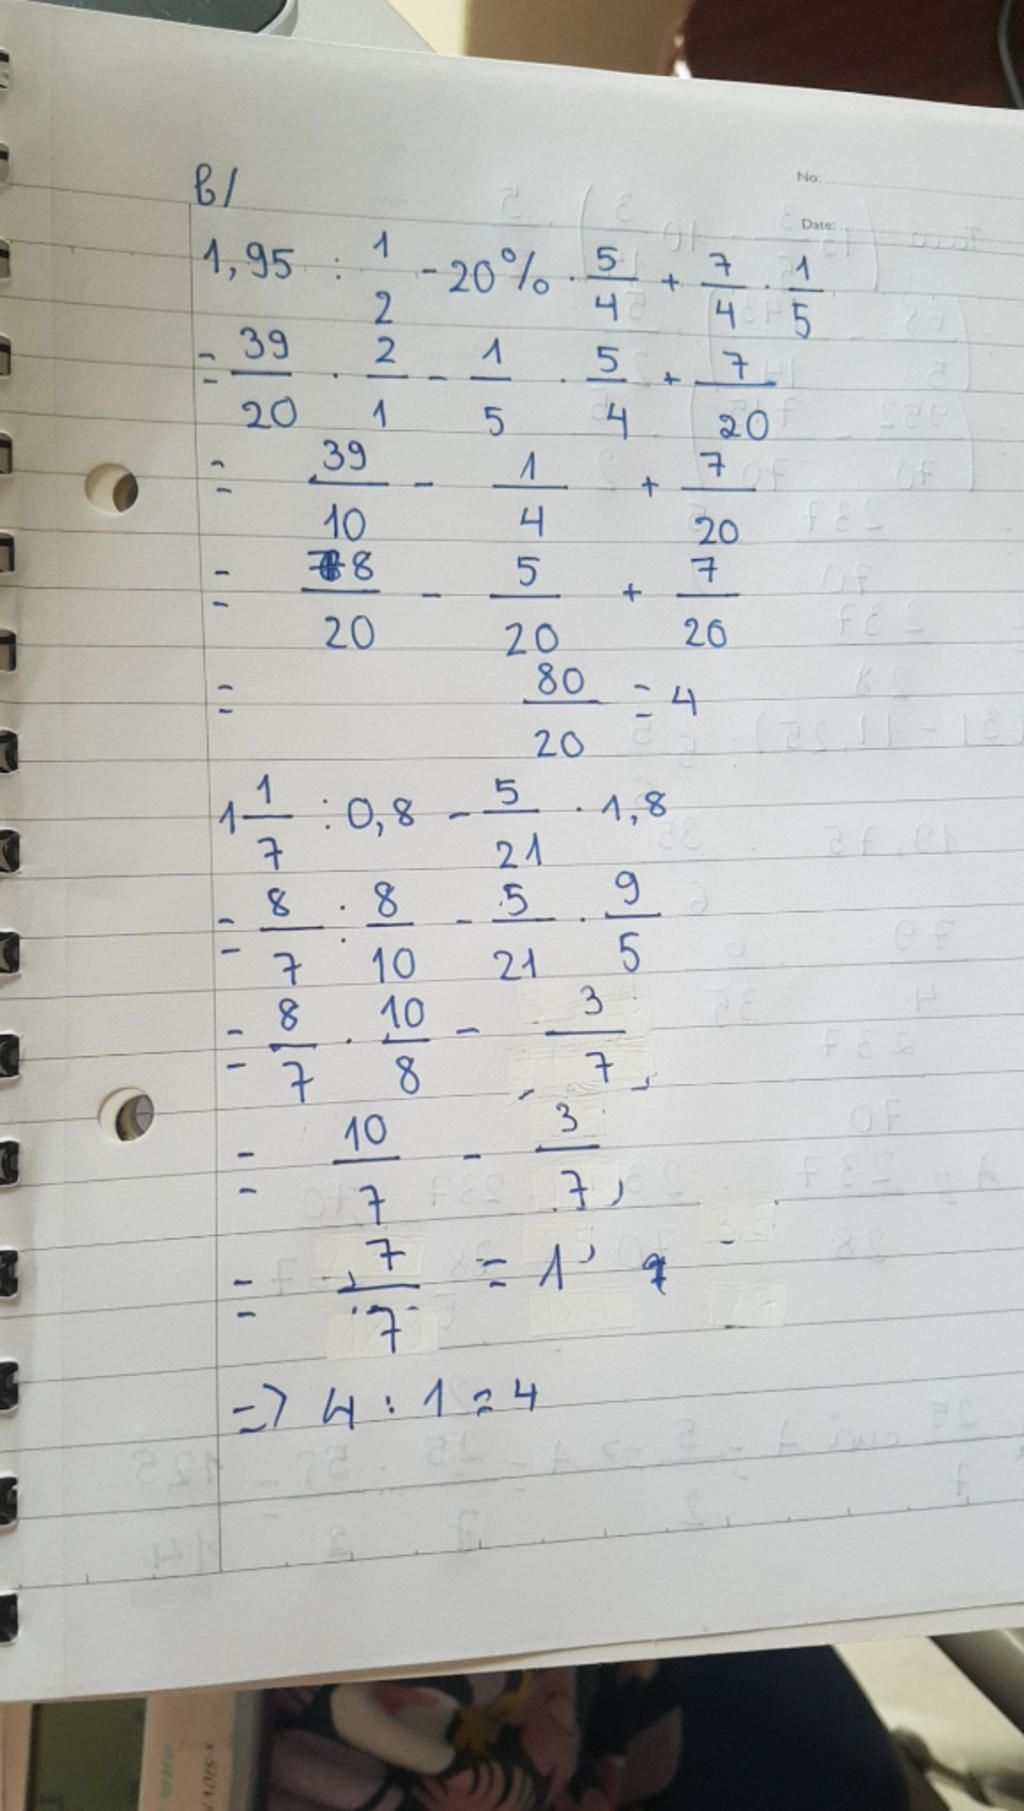 No:
b/
Date:
1,95 : 1/2 - 20% · 5/4 + 7/4 · 1/5
= 39/20 · 2/1 - 1/5 · 5/4 + 7/20
= 39/10 - 1/4 + 7/20
= 78/20 - 5/20 + 7/20
= 80/20 = 4
1 1/7 : 0,8 - 5/21 · 1,8
= 8/7 : 8/10 - 5/21 · 9/5
= 8/7 · 10/8 - 3/7
= 10/7 - 3/7
= 7/7 = 1
=> 4 : 1 = 4